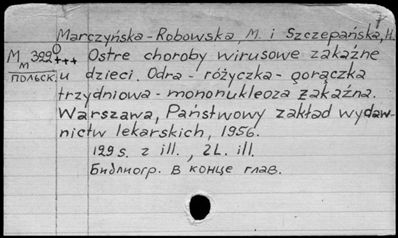 Marczyńska-Robowska, M. i Szczepańska, H.
M 399
м
польск
+++ Ostre choroby wirusowe zakaźne
u dzieci. Odra - różyczka - gorączka
trzydniowa - mononukleoza zakaźna.
Warszawa, Państwowy zakład wydaw-
nictw lekarskich, 1956.
129 s. z ill., 2 L. ill.
Библиогр. в конце глав.